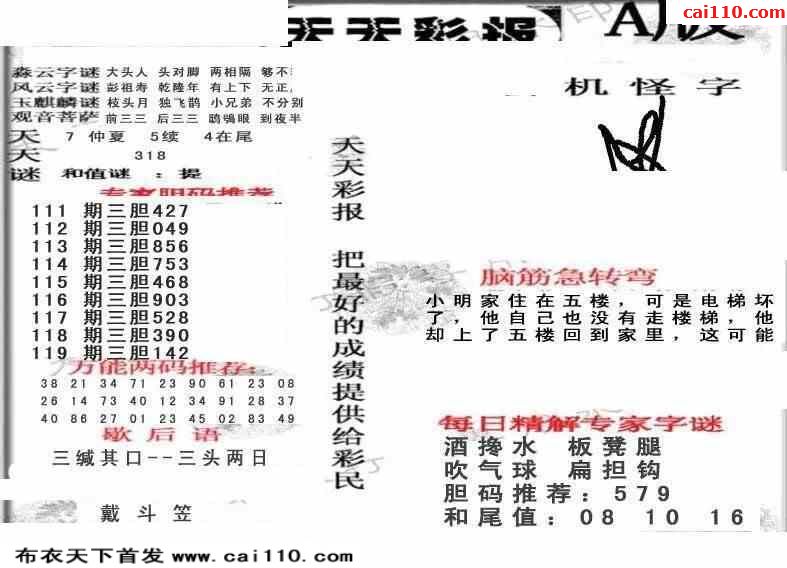 cai110.com
天天彩报 A版
机怪字
森云字谜 大头人 头对脚 两相隔 够不
风云字谜 彭祖寿 乾隆年 有上下 无正
玉麒麟谜 枝头月 独飞鹊 小兄弟 不分别
观音菩萨 前三三 后三三 鸱鸮眼 到夜半
天 7 仲夏 5续 4在尾
天 318
谜 和值谜 : 提
专家胆码推荐
111 期三胆427
112 期三胆049
113 期三胆856
114 期三胆753
115 期三胆468
116 期三胆903
117 期三胆528
118 期三胆390
119 期三胆142
万能两码推荐:
38 21 34 71 23 90 61 23 08
26 14 73 40 12 34 91 28 37
40 86 27 01 23 45 02 83 49
歇后语
三缄其口--三头两日
戴斗笠
天天彩报 把最好的成绩提供给彩民
脑筋急转弯
小明家住在五楼，可是电梯坏
了，他自己也没有走楼梯，他
却上了五楼回到家里，这可能
每日精解专家字谜
酒搀水 板凳腿
吹气球 扁担钩
胆码推荐: 579
和尾值: 08 10 16
布衣天下首发 www.cai110.com